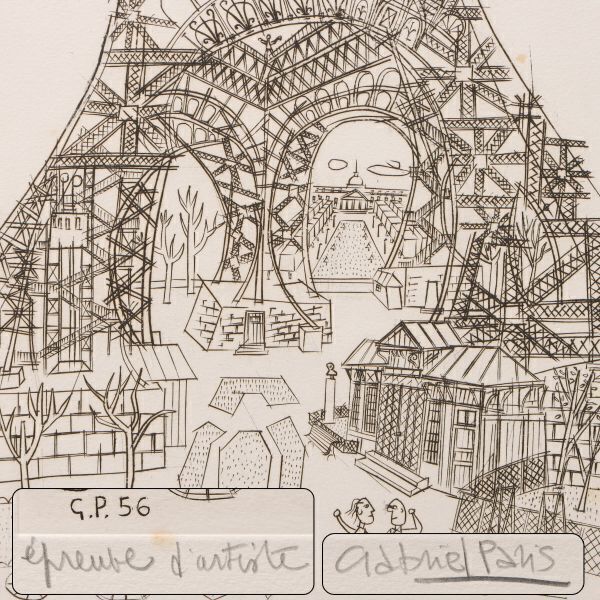 G.P. 56
épreuve d'artiste
Gabriel Paris